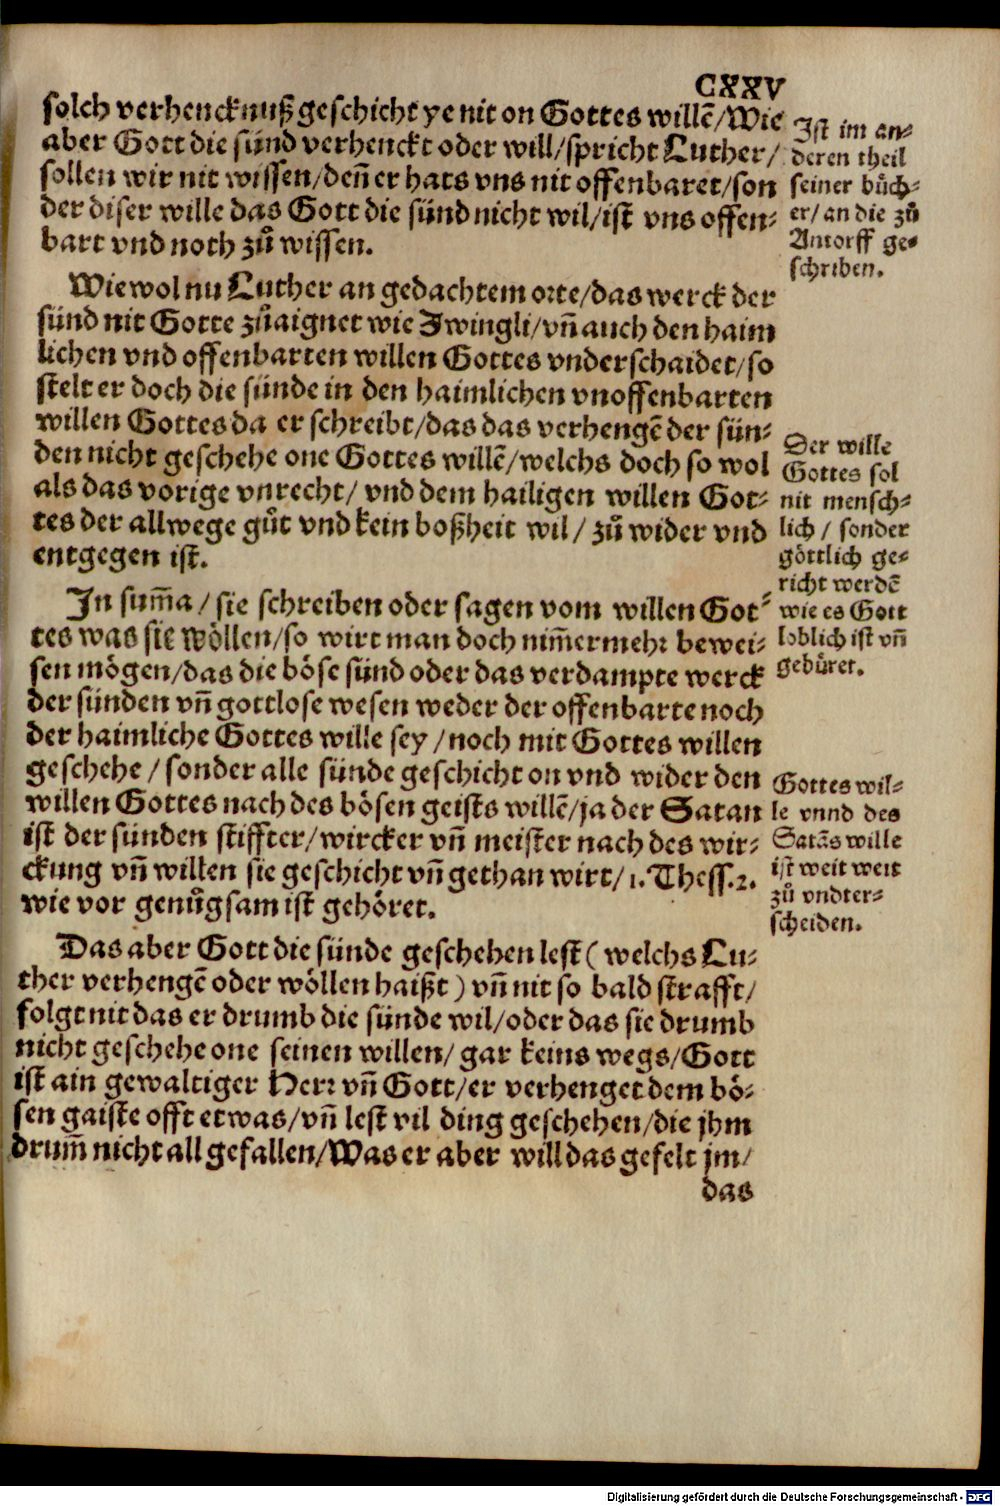 CXXV
solch verhencknuß geschicht ye nit on Gottes willẽ/Wie
aber Gott die sünd verhenckt oder will/spricht Luther/
sollen wir nit wissen/deñ er hats vns nit offenbaret/son
der diser wille das Gott die sünd nicht wil/ist vns offen⸗
bart vnd noth zů wissen.
Wiewol nu Luther an gedachtem orte/das werck der
sünd nit Gotte zůaignet wie Zwingli/vñ auch den haim
lichen vnd offenbarten willen Gottes vnderschaidet/so
stelt er doch die sünde in den haimlichen vnoffenbarten
willen Gottes da er schreibt/das das verhengẽ der sün⸗
den nicht geschehe one Gottes willẽ/welchs doch so wol
als das vorige vnrecht/ vnd dem hailigen willen Got⸗
tes der allwege gůt vnd kein boßheit wil/ zů wider vnd
entgegen ist.
In sum̃a/sie schreiben oder sagen vom willen Got⸗
tes was sie wöllen/so wirt man doch nim̃ermehr bewei⸗
sen mögen/das die böse sünd oder das verdampte werck
der sünden vñ gottlose wesen weder der offenbarte noch
der haimliche Gottes wille sey/noch mit Gottes willen
geschehe/sonder alle sünde geschicht on vnd wider den
willen Gottes nach des bösen geists willẽ/ja der Satan
ist der sünden stiffter/wircker vñ meister nach des wir⸗
ckung vñ willen sie geschicht vñ gethan wirt/1. Thess.2.
wie vor genůgsam ist gehöret.
Das aber Gott die sünde geschehen lest (welchs Lu⸗
ther verhengẽ oder wöllen haißt) vñ nit so bald strafft/
folgt nit das er drumb die sünde wil/oder das sie drumb
nicht geschehe one seinen willen/ gar keins wegs/Gott
ist ain gewaltiger Herr vñ Gott/er verhenget dem bö⸗
sen gaiste offt etwas/vñ lest vil ding geschehen/die jhm
drum̃ nicht all gefallen/Was er aber will das gefelt jm/
das
Ist im an⸗
deren theil
seiner bůch⸗
er/an die zů
Antorff ge⸗
schriben.
Der wille
Gottes sol
nit mensch⸗
lich/sonder
göttlich ge⸗
richt werdẽ
wie es Gott
loblich ist vñ
gebüret.
Gottes wil⸗
le vnnd des
Satãs wille
ist weit weit
zů vndter⸗
scheiden.
Digitalisierung gefördert durch die Deutsche Forschungsgemeinschaft - DFG